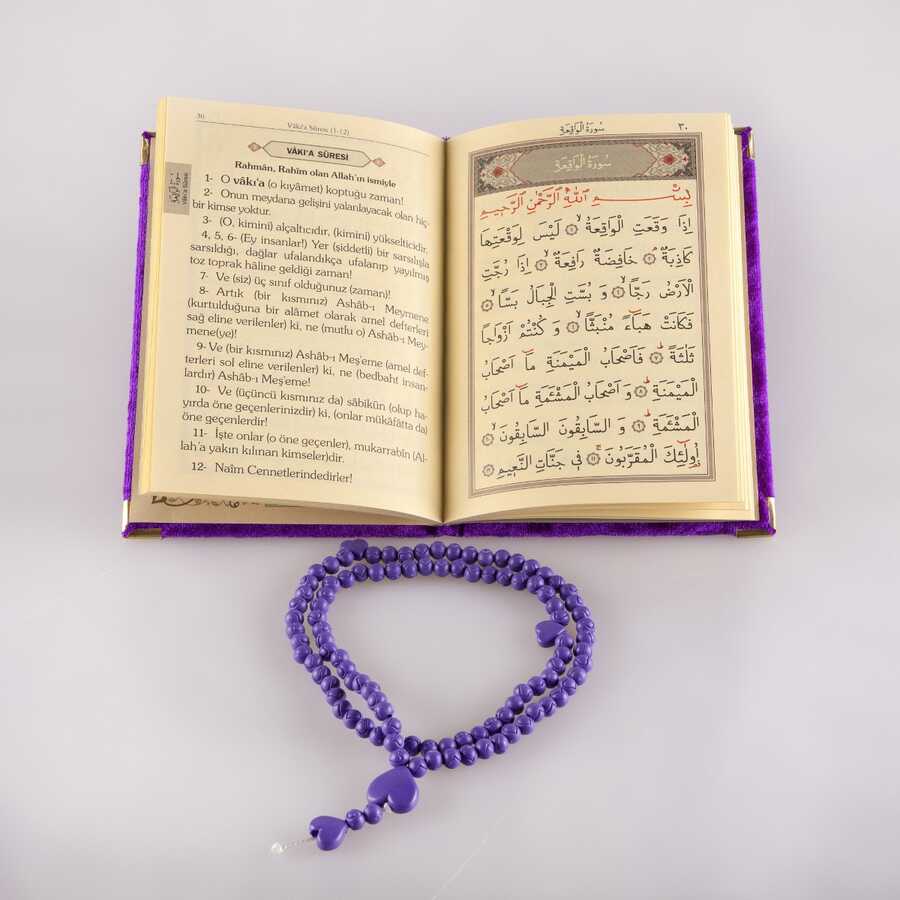 30
Vâkı'a Sûresi (1-12)
VÂKI'A SÛRESİ
Rahmân, Rahîm olan Allah'ın ismiyle
1- O vâkı'a (o kıyâmet) koptuğu zaman!
2- Onun meydana gelişini yalanlayacak olan hiç-
bir kimse yoktur.
3- (O, kimini) alçaltıcıdır, (kimini) yükselticidir.
4, 5, 6- (Ey insanlar!) Yer (şiddetli) bir sarsılışla
sarsıldığı, dağlar ufalandıkça ufalanıp yayılmış
toz toprak hâline geldiği zaman!
7- Ve (siz) üç sınıf olduğunuz (zaman)!
8- Artık (bir kısmınız) Ashâb-ı Meymene
(kurtulduğuna bir alâmet olarak amel defterleri
sağ eline verilenler) ki, ne (mutlu o) Ashâb-ı Mey-
mene(ye)!
9- Ve (bir kısmınız) Ashâb-ı Meş'eme (amel def-
terleri sol eline verilenler) ki, ne (bedbaht insan-
lardır) Ashâb-ı Meş'eme!
10- Ve (üçüncü kısmınız da) sâbikûn (olup ha-
yırda öne geçenlerinizdir) ki, (onlar mükâfâtta da)
öne geçenlerdir!
11- İşte onlar (o öne geçenler), mukarrabîn (Al-
lah'a yakın kılınan kimseler)dir.
12- Naîm Cennetlerindedirler!
Vâkı'a Sûresi
سورة الواقعة
٣٠
سُورَةُ الْوَاقِعَةِ
سُورَةُ الْوَاقِعَةِ
بِسْمِ اللهِ الرَّحْمٰنِ الرَّحِيمِ
اِذَا وَقَعَتِ الْوَاقِعَةُ ﴿١﴾ لَيْسَ لِوَقْعَتِهَا
كَاذِبَةٌ ﴿٢﴾ خَافِضَةٌ رَافِعَةٌ ﴿٣﴾ اِذَا رُجَّتِ
الْاَرْضُ رَجًّا ﴿٤﴾ وَ بُسَّتِ الْجِبَالُ بَسًّا ﴿٥﴾
فَكَانَتْ هَبَاءً مُنْبَثًّا ﴿٦﴾ وَ كُنْتُمْ اَزْوَاجًا
ثَلٰثَةً ﴿٧﴾ فَاَصْحَابُ الْمَيْمَنَةِ مَا اَصْحَابُ
الْمَيْمَنَةِ ﴿٨﴾ وَ اَصْحَابُ الْمَشْئَمَةِ مَا اَصْحَابُ
الْمَشْئَمَةِ ﴿٩﴾ وَ السَّابِقُونَ السَّابِقُونَ ﴿١٠﴾
اُولٰئِكَ الْمُقَرَّبُونَ ﴿١١﴾ فِي جَنَّاتِ النَّعِيمِ ﴿١٢﴾